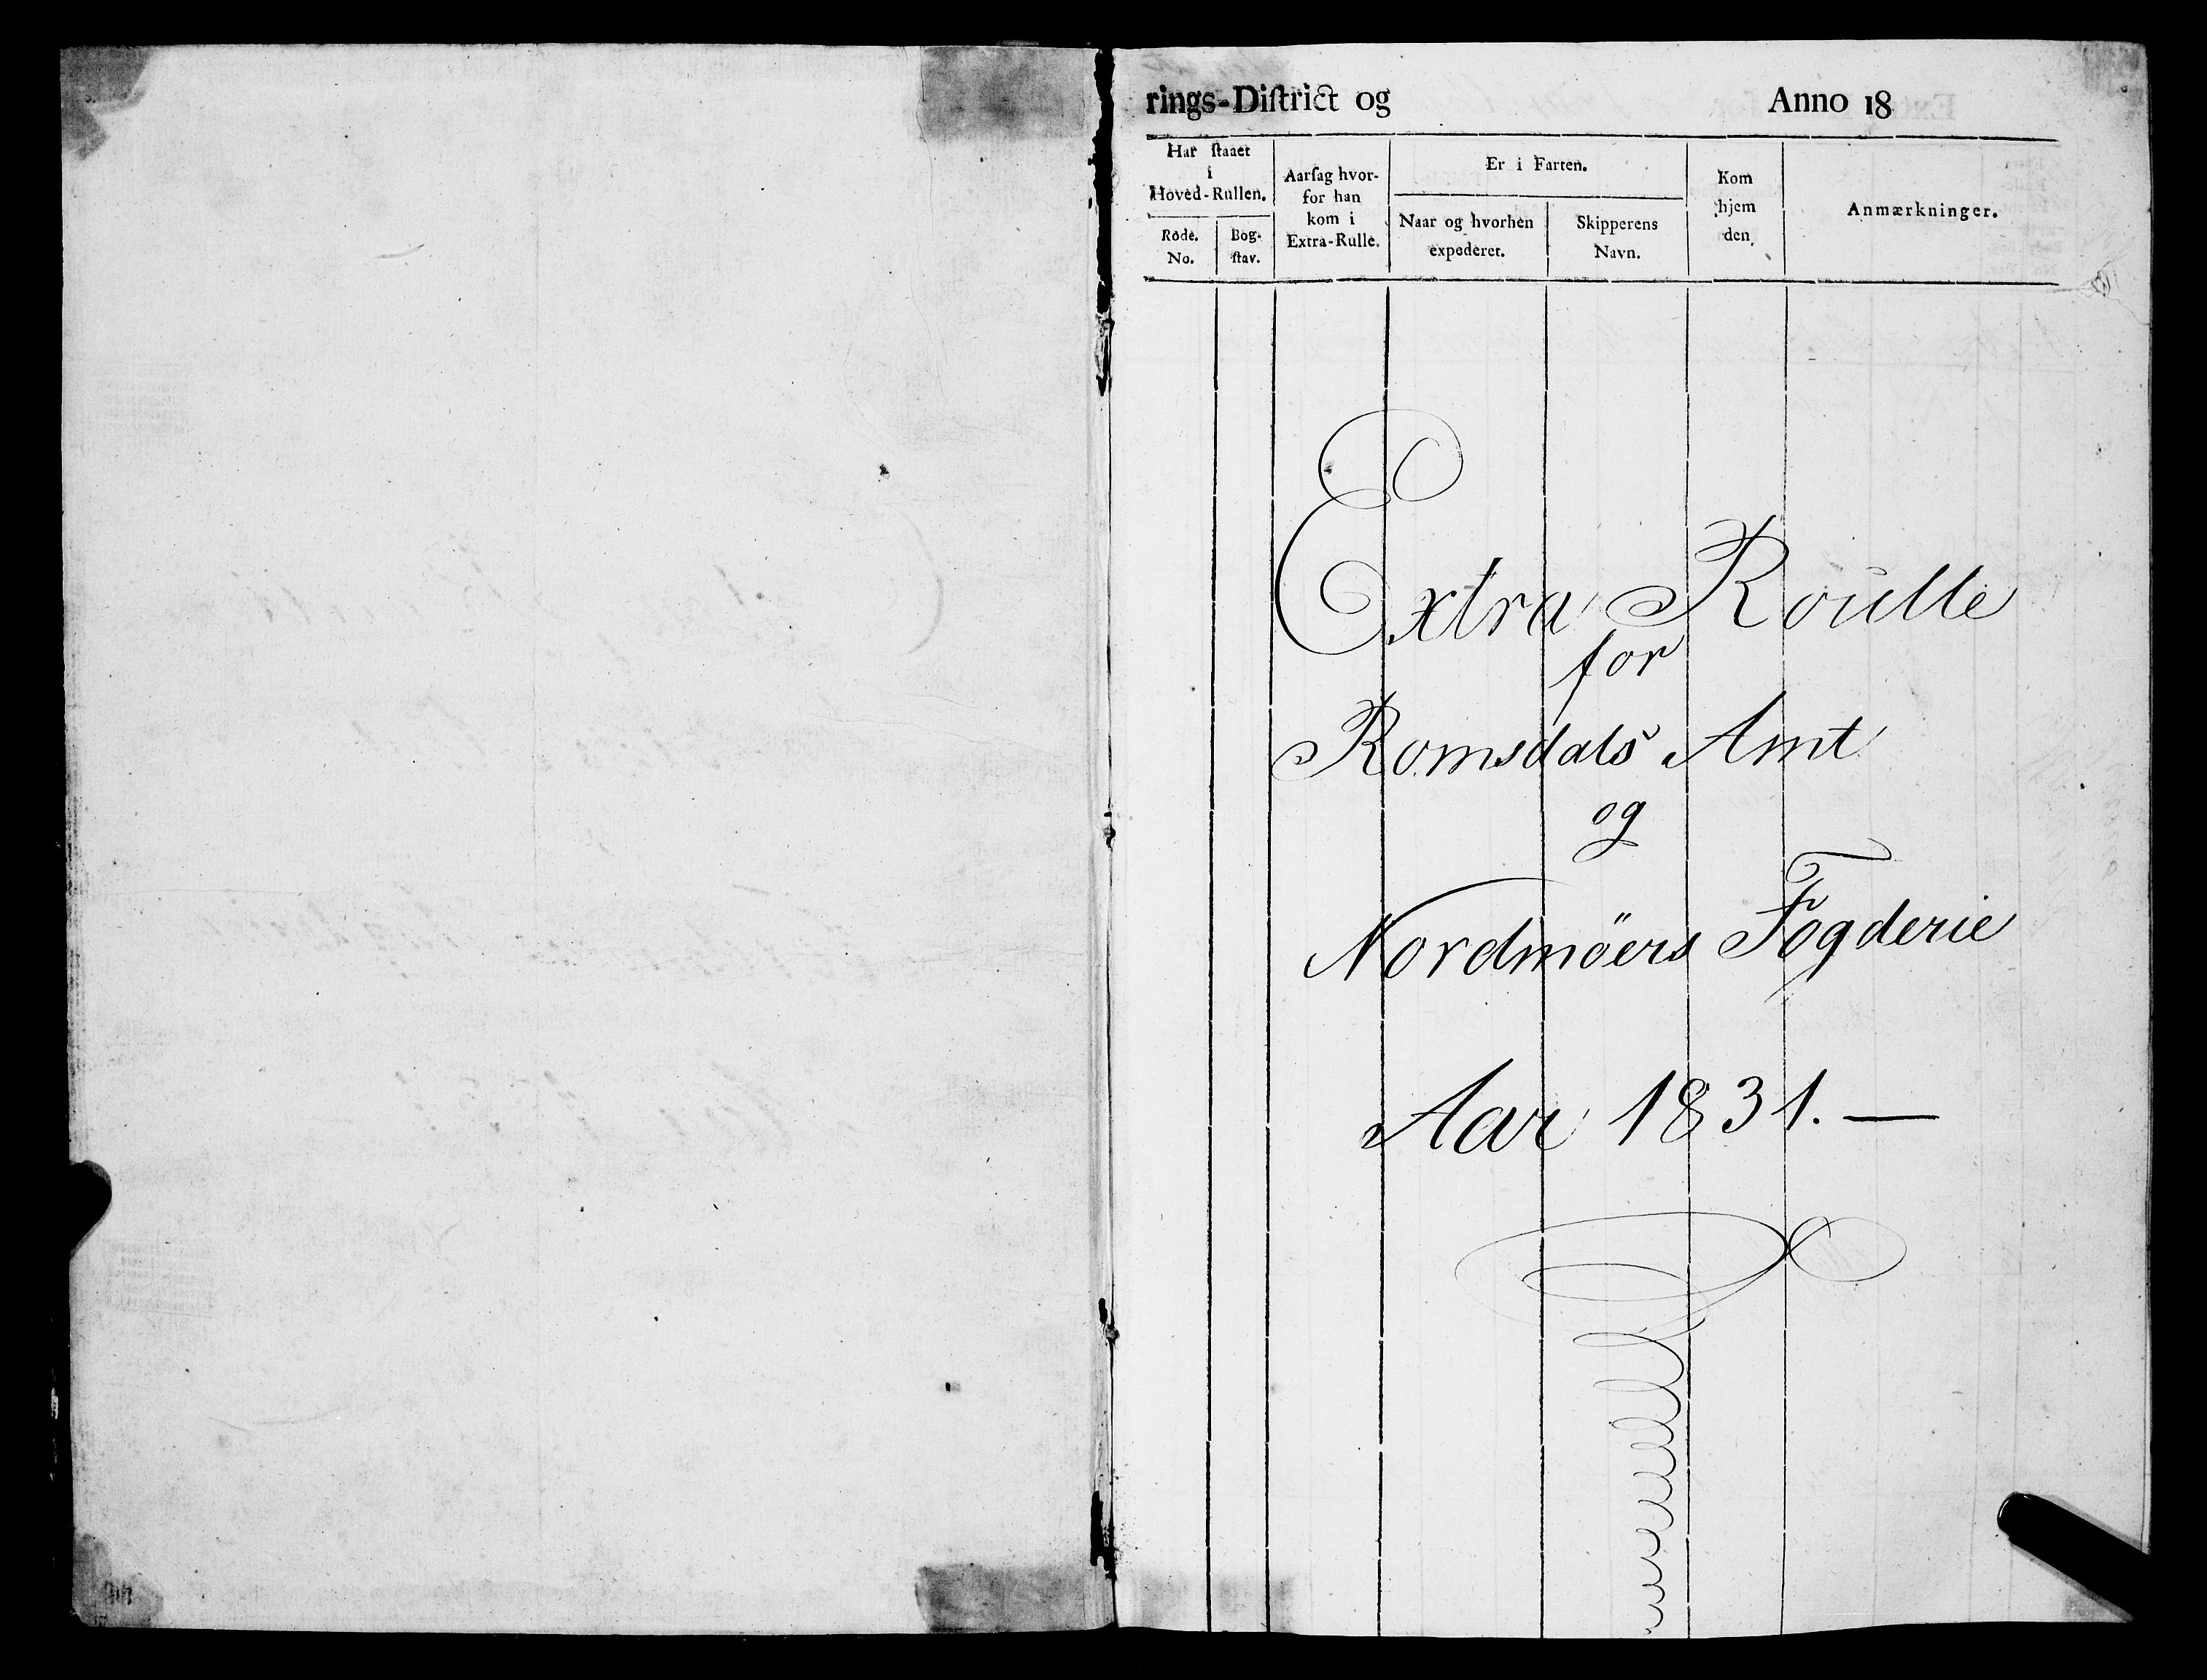 rings-Diſtrict og Anno 18
Har ſtaaet
i
Hoved-Rullen.
Rode.
No.
Bog-
ſtav.
Aarſag hvor-
for han
kom i
Extra-Rulle.
Er i Farten.
Naar og hvorhen
expederet.
Skipperens
Navn.
Kom
hjem
den
Anmærkninger.
Extra Roulle
for
Romsdals Amt
og
Nordmöers Fogderie
Aar 1831. —